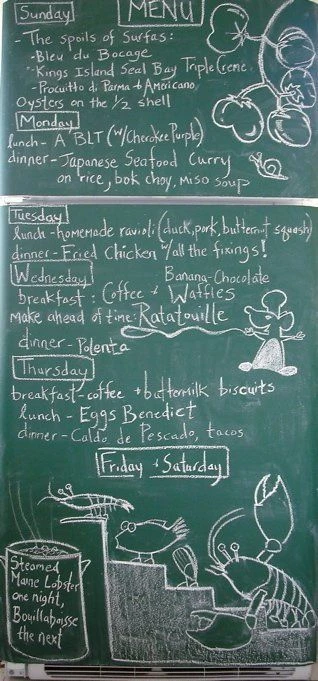 Sunday
MENU
- The spoils of Surfas:
- Bleu du Bocage
- Kings Island Seal Bay Triple Creme
- Procuitto di Parma + Americano
Oysters on the 1/2 shell
Monday
lunch - A BLT (w/Cherokee Purple)
dinner - Japanese Seafood Curry
on rice, bok choy, miso soup
Tuesday
lunch - homemade ravioli (duck, pork, butternut squash)
dinner - Fried Chicken w/all the fixings!
Wednesday
Banana-Chocolate
breakfast: Coffee + Waffles
make ahead of time: Ratatouille
dinner - Polenta
Thursday
breakfast - coffee + buttermilk biscuits
lunch - Eggs Benedict
dinner - Caldo de Pescado, tacos
Friday + Saturday
Steamed
Maine Lobster
one night,
Bouillabaisse
the next